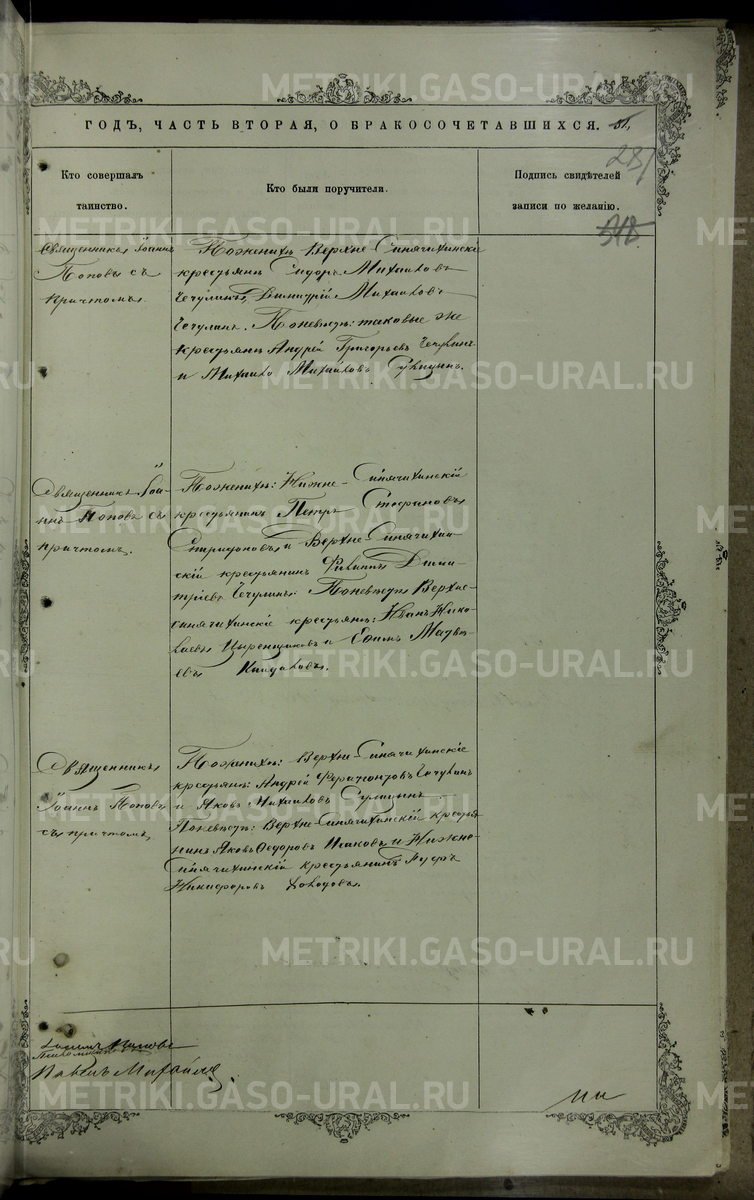 METRIKI.GASO-URAL.RU
ГОДЪ, ЧАСТЬ ВТОРАЯ, О БРАКОСОЧЕТАВШИХСЯ.
281
318
Кто совершалъ
таинство.
Кто были поручители.
Подпись свидѣтелей
записи по желанію.
Священникъ Іоаннъ
Поповъ съ
причтомъ.
По женихѣ Верхне-Синячихинскіе
крестьяне Сидоръ Михаиловъ
Чечулинъ, Димитрій Михаиловъ
Чечулинъ. По невѣстѣ: таковые же
крестьяне Андрей Григорьевъ Чечулинъ
и Михаилъ Михаиловъ
Священникъ Іоа-
ннъ Поповъ съ
причтомъ.
По женихѣ: Нижне-Синячихинскій
крестьянинъ Петръ Стефановъ
Спиридоновъ и Верхне-Синячихин-
скій крестьянинъ Филиппъ Дими-
тріевъ Чечулинъ. По невѣстѣ Верхне-
синячихинскіе крестьяне: Иванъ Нико-
лаевъ и Ефимъ Матвѣ-
евъ
Священникъ
Іоаннъ Поповъ
съ причтомъ.
По женихѣ: Верхне-Синячихинскіе
крестьяне: Андрей Ферапонтовъ Чечулинъ
и Яковъ Михаиловъ
По невѣстѣ: Верхне-Синячихинскій крестья-
нинъ Яковъ Ѳедоровъ Исаковъ и Нижне-
Синячихинскій крестьянинъ
Никифоровъ
Іоаннъ Поповъ
Павелъ
METRIKI.GASO-URAL.RU